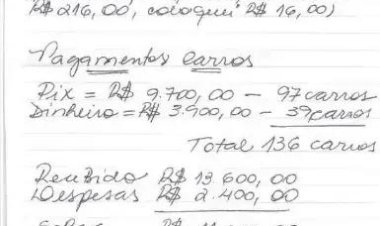 R$ 216,00, coloquei R$ 16,00)
Pagamentos carros
Pix = R$ 9.700,00 - 97 carros
Dinheiro = R$ 3.900,00 - 39 carros
Total 136 carros
Recebido R$ 13 600,00
Despesas R$ 2.400,00